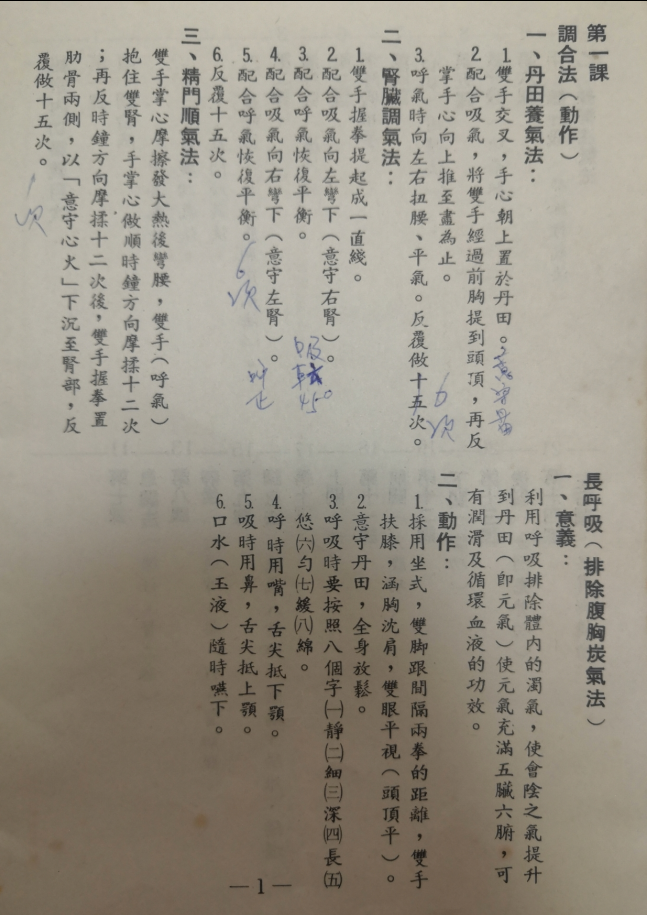 第一課
調合法（動作）
一、丹田養氣法：
1.雙手交叉，手心朝上置於丹田。
2.配合吸氣，將雙手經過前胸提到頭頂，再反
掌手心向上推至盡為止。
3.呼氣時向左右扭腰、平氣。反覆做十五次。
6次
二、腎臟調氣法：
1.雙手握拳提起成一直綫。
2.配合吸氣向左彎下（意守右腎）。
3.配合呼氣恢復平衡。
吸
45°
4.配合吸氣向右彎下（意守左腎）。
呼
5.配合呼氣恢復平衡。
6.反覆十五次。
6次
三、精門順氣法：
雙手掌心摩擦發大熱後彎腰，雙手（呼氣）
抱住雙腎，手掌心做順時鐘方向摩揉十二次
；再反時鐘方向摩揉十二次後，雙手握拳置
肋骨兩側，以「意守心火」下沉至腎部，反
覆做十五次。
次
長呼吸（排除腹胸炭氣法）
一、意義：
利用呼吸排除體內的濁氣，使會陰之氣提升
到丹田（卽元氣）使元氣充滿五臟六腑，可
有潤滑及循環血液的功效。
二、動作：
1.採用坐式，雙脚跟間隔兩拳的距離，雙手
扶膝，涵胸沈肩，雙眼平視（頭頂平）。
2.意守丹田，全身放鬆。
3.呼吸時要按照八個字㈠靜㈡細㈢深㈣長㈤
悠㈥勻㈦緩㈧綿。
4.呼時用嘴，舌尖抵下顎。
5.吸時用鼻，舌尖抵上顎。
6.口水（玉液）隨時嚥下。
—1—